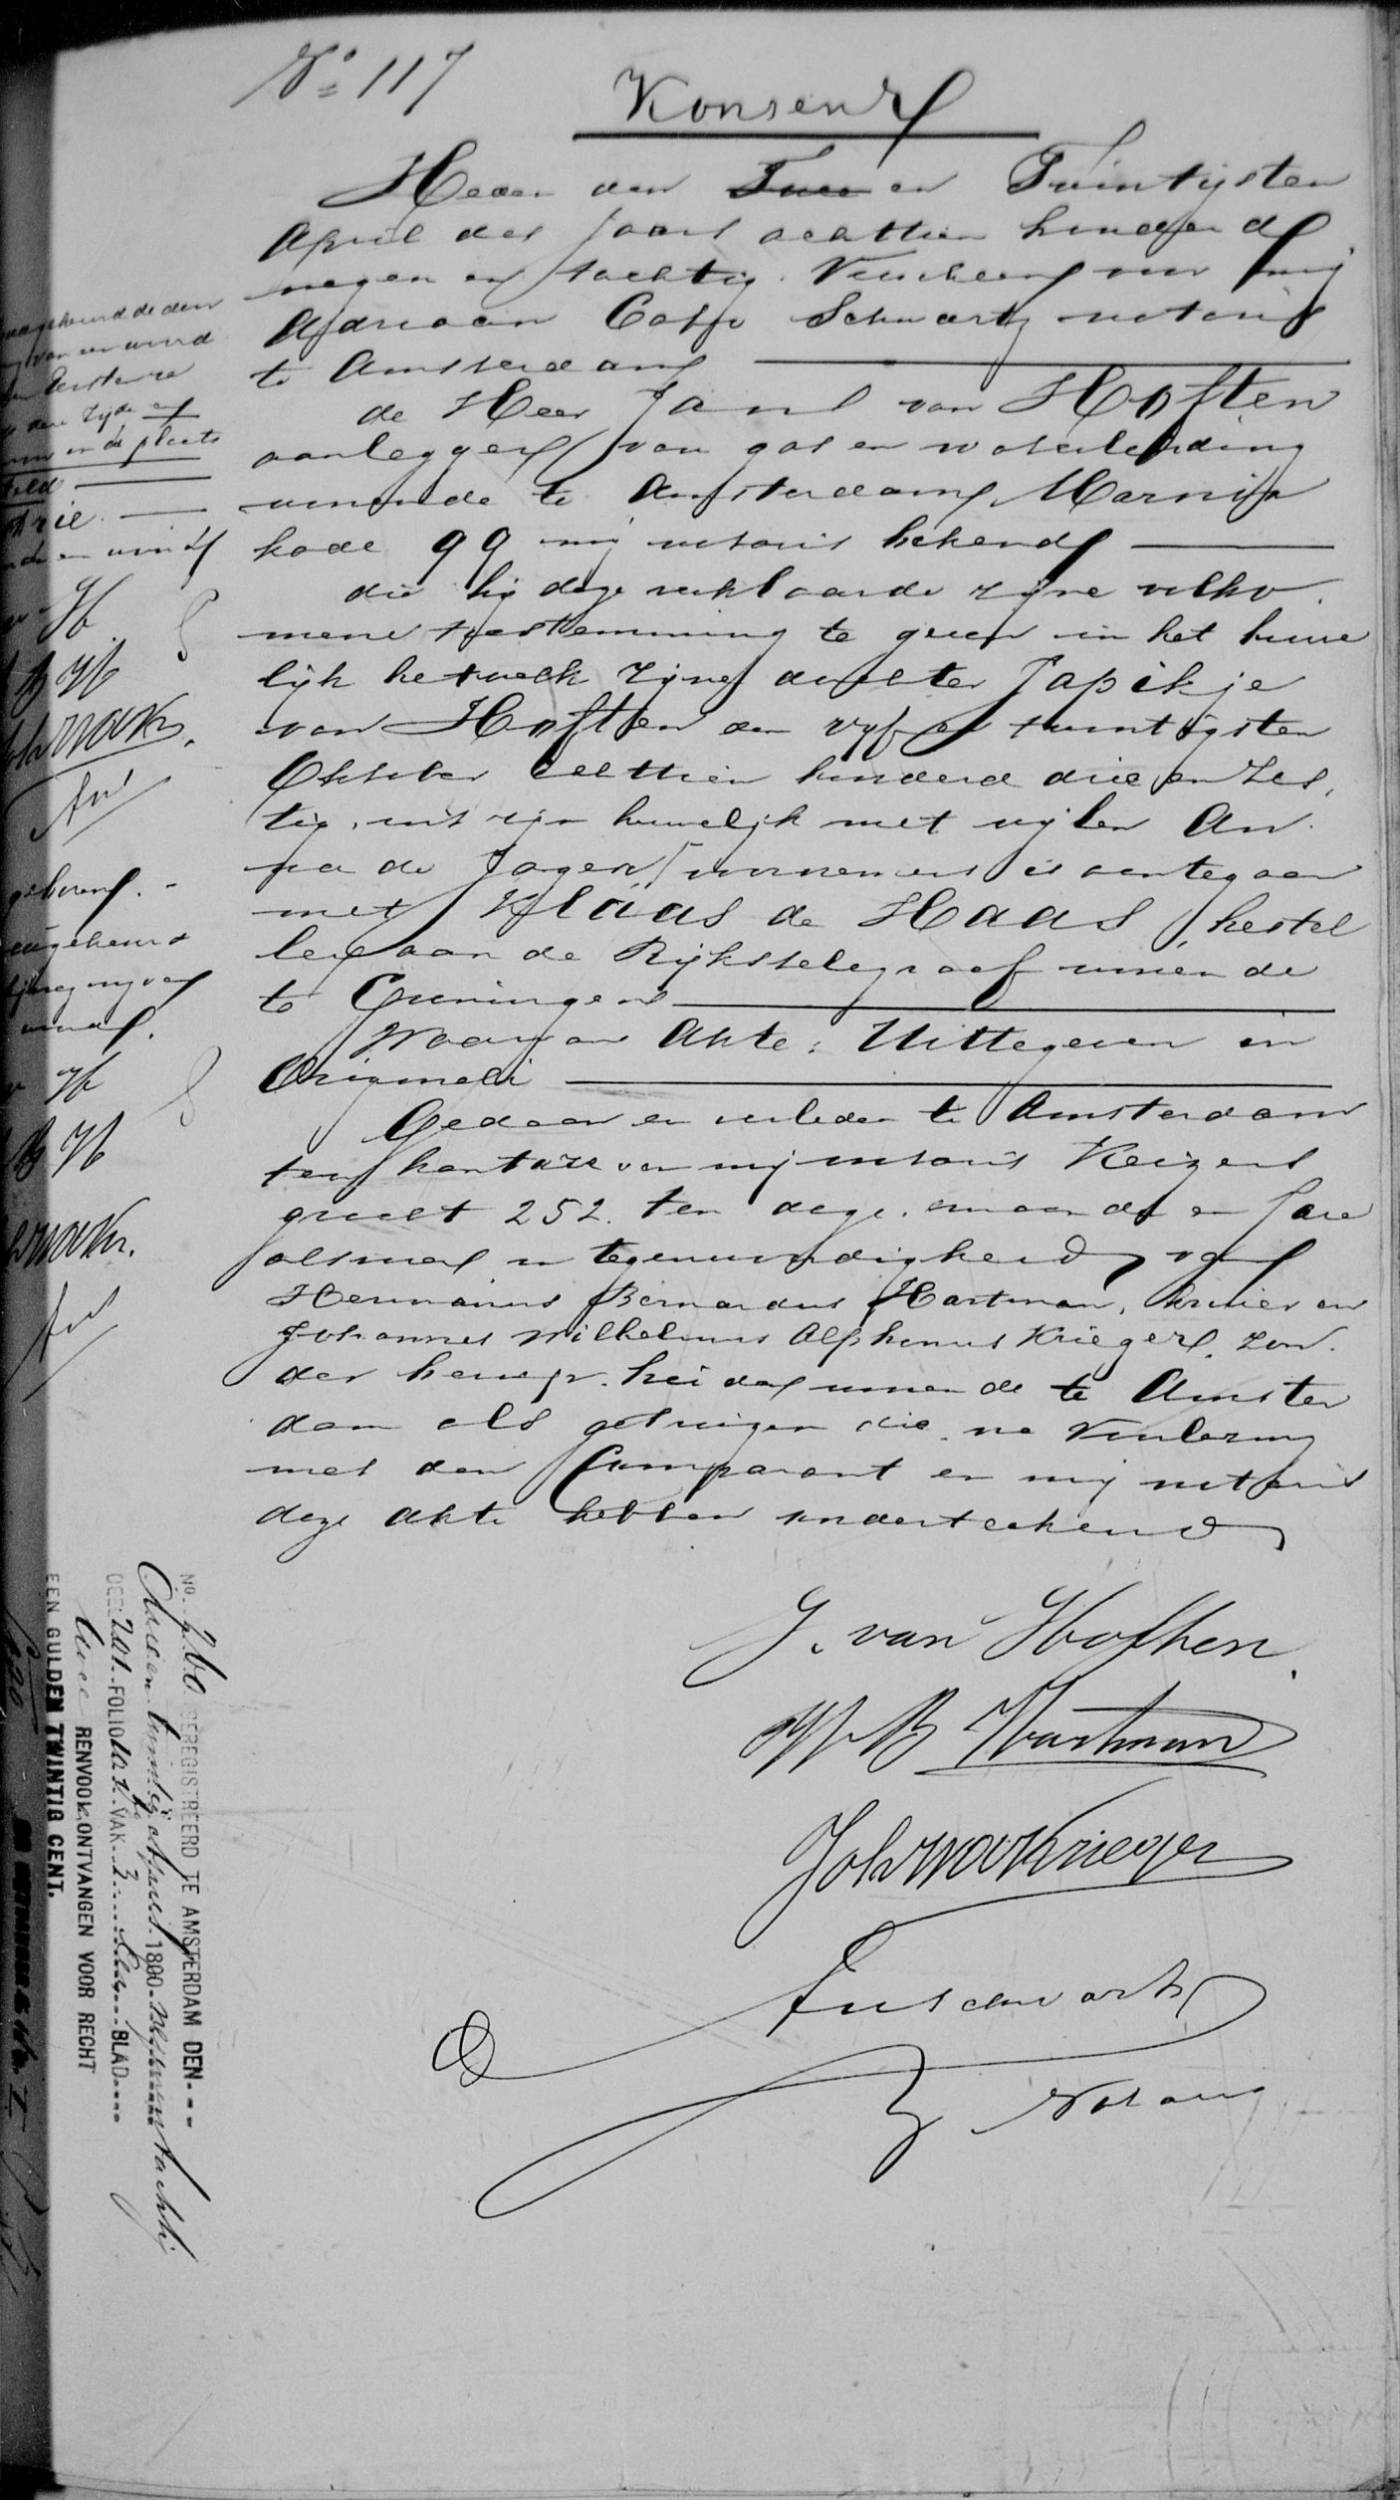 No 117
Konsent
Heden den Twee en Twintigsten
April des Jaars achttien honderd
negen en tachtig. Verscheen voor mij
Adriaan Schwartz notaris
te Amsterdam
de Heer Jans van Hoften
aanlegger van gas en waterleiding
wonende te Amsterdam Marnix
kade 99 mij notaris bekend
die bij deze verklaarde zijne volko
mene toestemming te geven in het huwe
lijk hetwelk zijne dochter Japikje
van Hoften den vijf en twintigsten
Oktober achttien honderd drie en zes
tig, uit zijn huwelijk met wijlen An
na de Jager voornemens is aantegaan
met Klaas de Haas, bestel
ler aan de Rijkstelegraaf wonende
te Groningen
Waarvan Akte: Uittegeven in
Originali
Gedaan en verleden te Amsterdam
ten kantore van mij notaris Keizers
gracht 252. ten dage, maand en Jare
alsmed in tegenwoordigheid van
Hermanus Bernardus Hartman, en
Johannes Wilhelmus Alphonus Krieger, zon
der beroep. beide wonende te Amster
dam als getuigen die, na Voorlezing
met den Comparant en mij notaris
deze akte hebben onderteekend
J. van Hoften.
H B Hartman
Joh WA Krieger
Schwartz
Notaris
geboren.
van de woord
tweede zijde en
in de plaats
drie
H
B H
No. 760 GEREGISTREERD TE AMSTERDAM DEN
twee en twintig April 1800 negen en tachtig
DEEL 201 FOLIO VAK 3 een BLAD
twee RENVOOIK, ONTVANGEN VOOR RECHT
EEN GULDEN TWINTIG CENT.